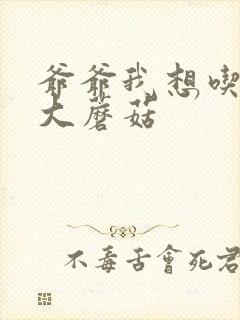 爺爺我想喫
大蘑菇
不毒舌會死君